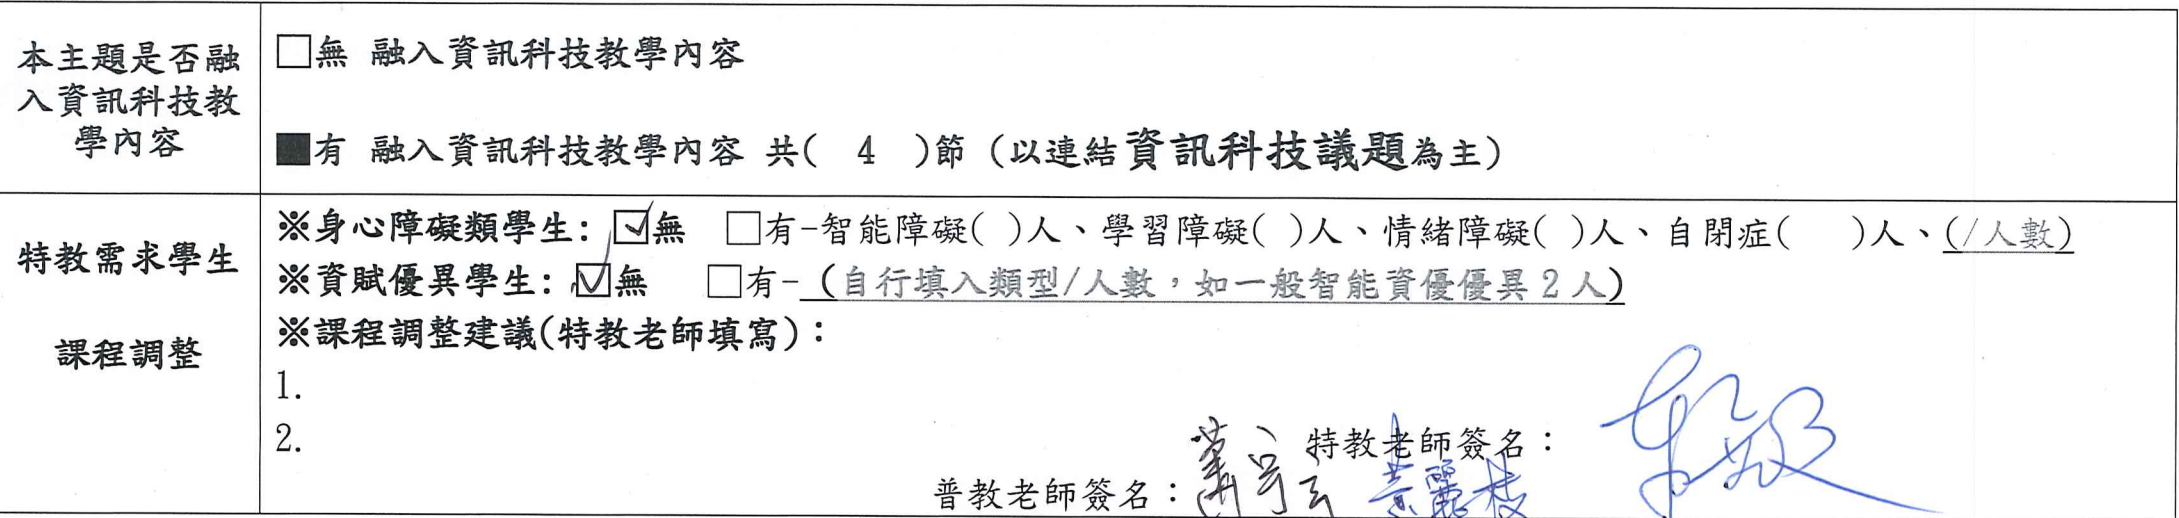 本主題是否融
入資訊科技教
學內容
□無 融入資訊科技教學內容
■有 融入資訊科技教學內容 共( 4 )節 (以連結資訊科技議題為主)
特教需求學生
課程調整
※身心障礙類學生: ☑無 □有-智能障礙( )人、學習障礙( )人、情緒障礙( )人、自閉症( )人、(/人數)
※資賦優異學生: ☑無 □有-(自行填入類型/人數,如一般智能資優優異2人)
※課程調整建議(特教老師填寫):
1.
2.
特教老師簽名:
普教老師簽名: